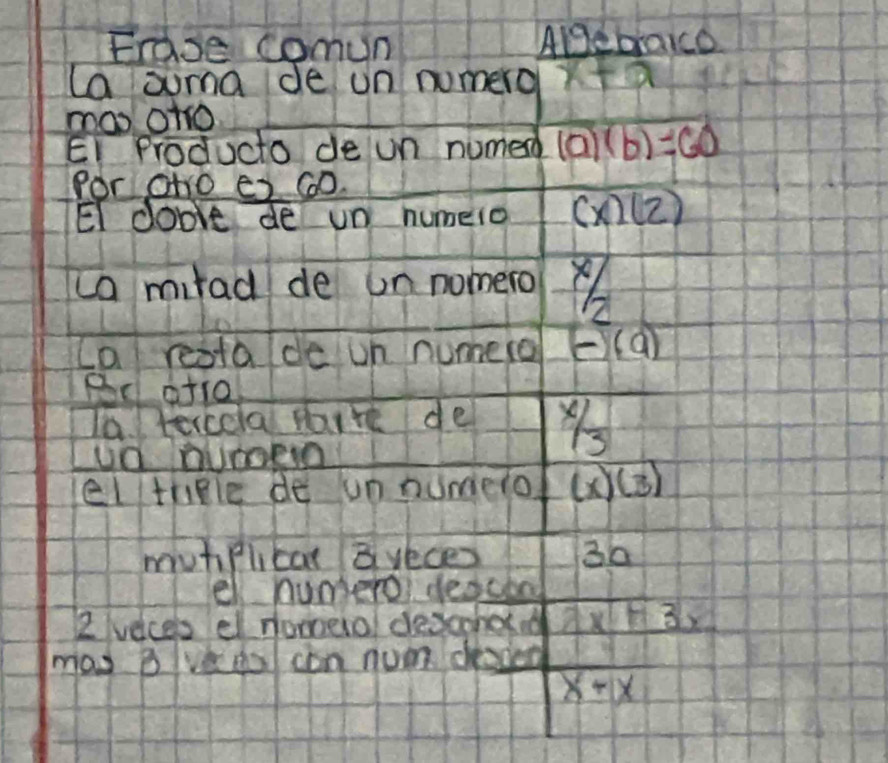 Frase comun Algebraico
La suma de un numero x + a
mas otro
El Producto de un numero (a)(b)=60
Por otro es 60.
El doble de un numero (x)(2)
La mitad de un numero x/2
La resta de un numero (-)(a)
Por otro
la tercera parte de x/3
un numero
el triple de un numero (x)(3)
mutiplicar 3 veces 3a
el numero descon
2 veces el numero desconocid 2x + 3x
mas 3 veces con num descon
x + x